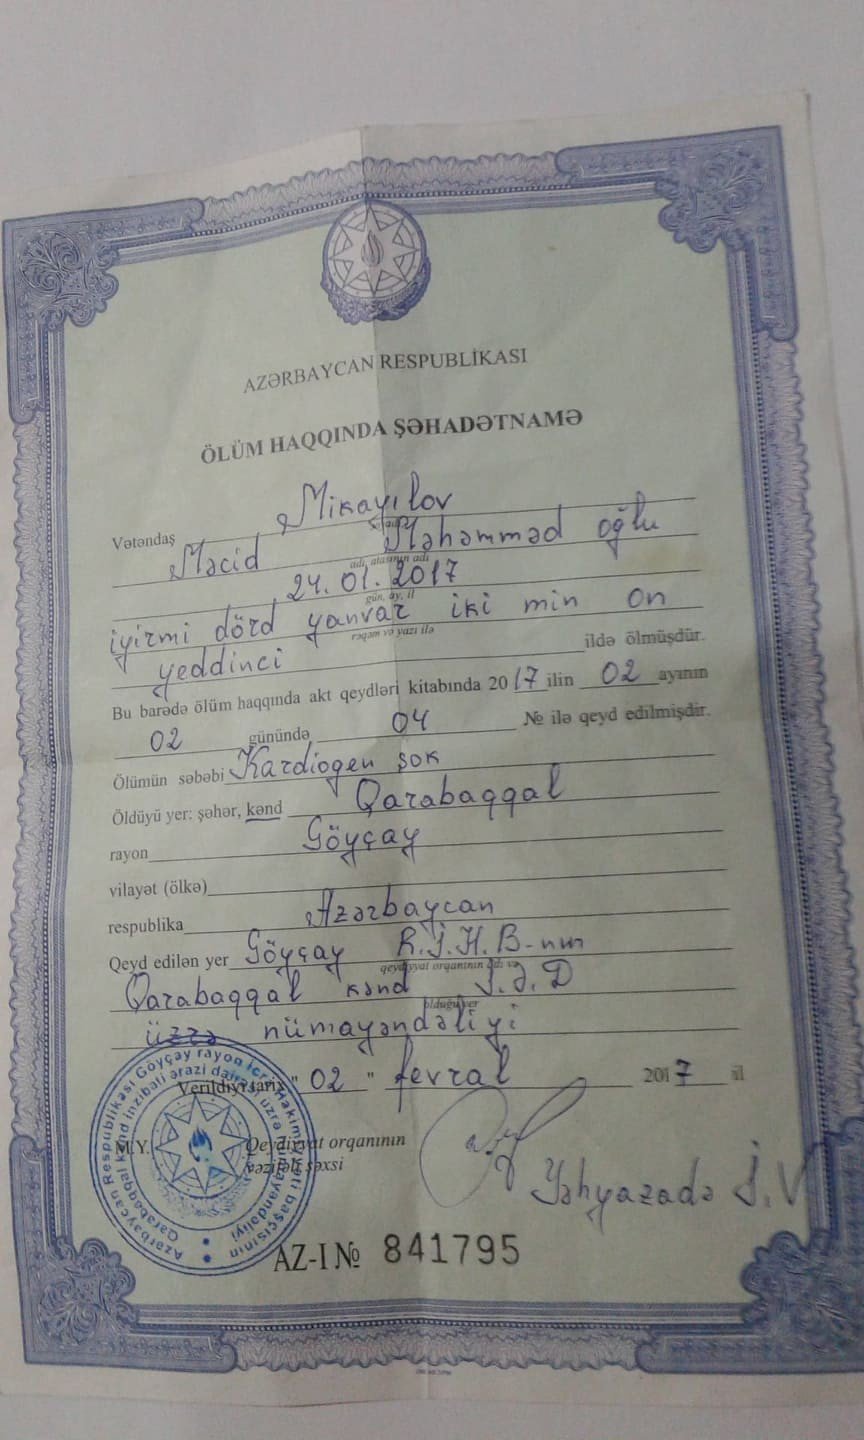 AZƏRBAYCAN RESPUBLİKASI
ÖLÜM HAQQINDA ŞƏHADƏTNAMƏ
Vətəndaş Mikayılov
soyadı
Məcid Məhəmməd oğlu
adı, atasının adı
24.01.2017
gün, ay, il
iyirmi dörd yanvar iki min on
rəqəm və yazı ilə
yeddinci ildə ölmüşdür.
Bu barədə ölüm haqqında akt qeydləri kitabında 2017 ilin 02 ayının
02 günündə 04 № ilə qeyd edilmişdir.
Ölümün səbəbi Kardiogen şok
Öldüyü yer: şəhər, kənd Qarabaqqal
rayon Göyçay
vilayət (ölkə)
respublika Azərbaycan
Qeyd edilən yer Göyçay R.İ.H.B-nun
qeydiyyat orqanının adı və
Qarabaqqal kənd İ.Ə.D
olduğu yer
üzrə nümayəndəliyi
Verildiyi tarix "02" fevral 2017 il
M.Y. Qeydiyyat orqanının
vəzifəli şəxsi
Yəhyazadə İ.V
Azərbaycan Respublikası Göyçay rayon İcra Hakimiyyəti başçısının
Qarabaqqal kənd inzibati ərazi dairəsi üzrə nümayəndəliyi
AZ-I № 841795